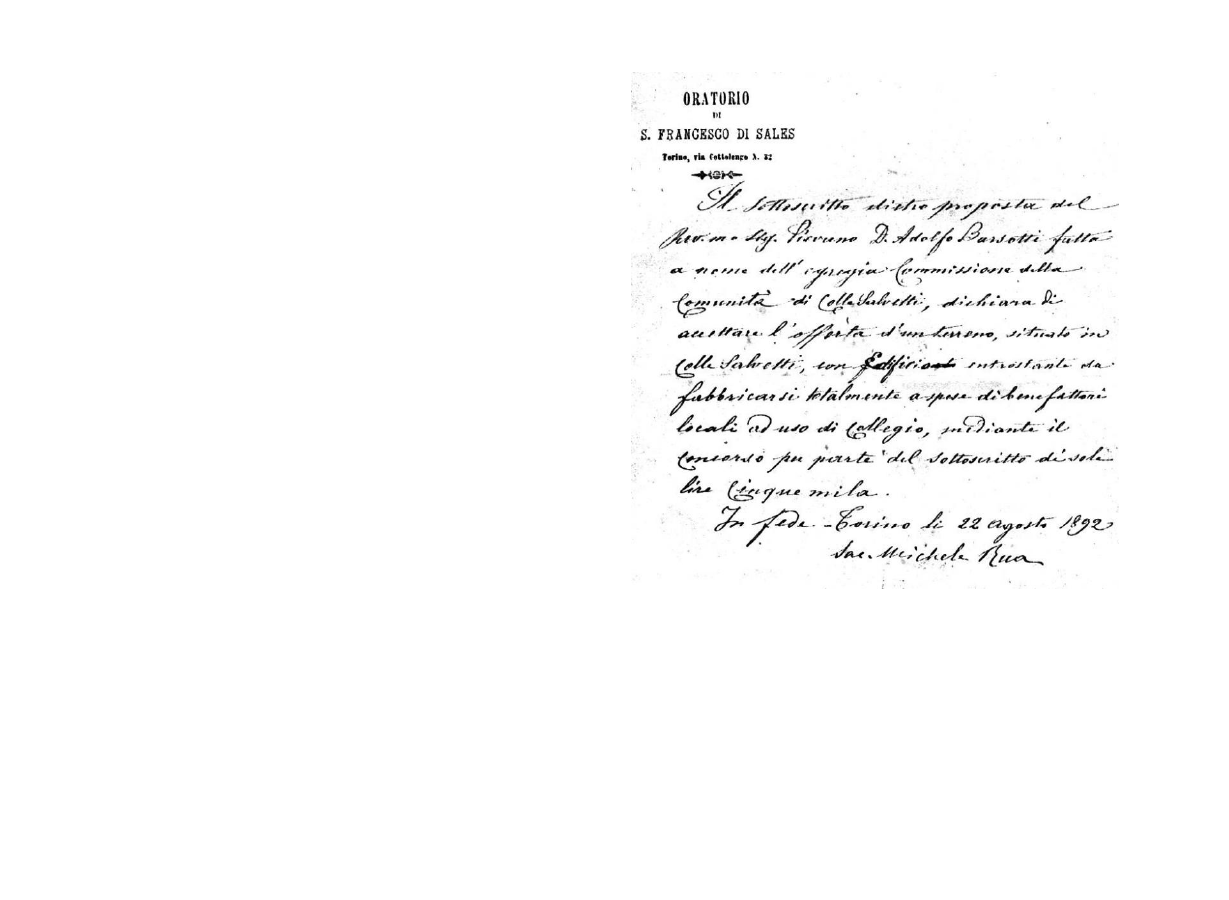 ORATORIO
DI
S. FRANCESCO DI SALES
Torino, via Cottolengo N. 32
Il sottoscritto dietro proposta del
Rev.mo Sig. Pievano D. Adolfo Barsotti fatta
a nome dell' egregia Commissione della
Comunità di Colle Salvetti, dichiara di
accettare l'offerta d'un terreno, situato in
Colle Salvetti, con Edificio entrostante da
fabbricarsi totalmente a spese di benefattori
locali ad uso di Collegio, mediante il
concorso per parte del sottoscritto di sole
lire Cinque mila.
In fede - Torino li 22 agosto 1892
Sac. Michele Rua